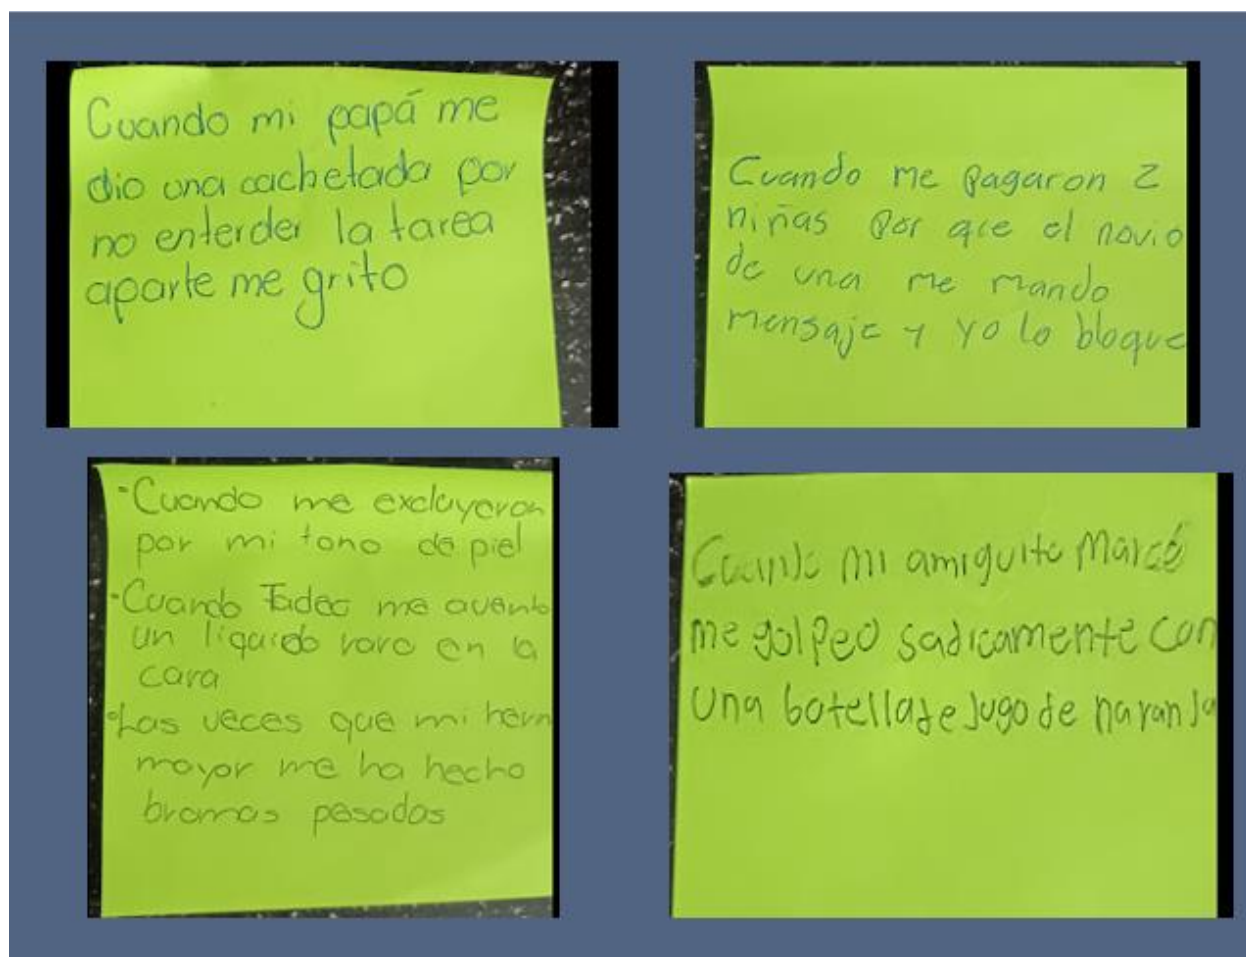 Cuando mi papá me
dio una cachetada por
no enterder la tarea
aparte me grito
Cuando me pagaron 2
niñas por que el novio
de una me mando
mensaje y yo lo bloque
-Cuando me excluyeron
por mi tono de piel
-Cuando Tadeo me avento
un liquido raro en la
cara
-Las veces que mi herm
mayor me ha hecho
bromas pesadas
Cuando mi amiguito
me golpeo sadicamente con
una botella de jugo de naranja